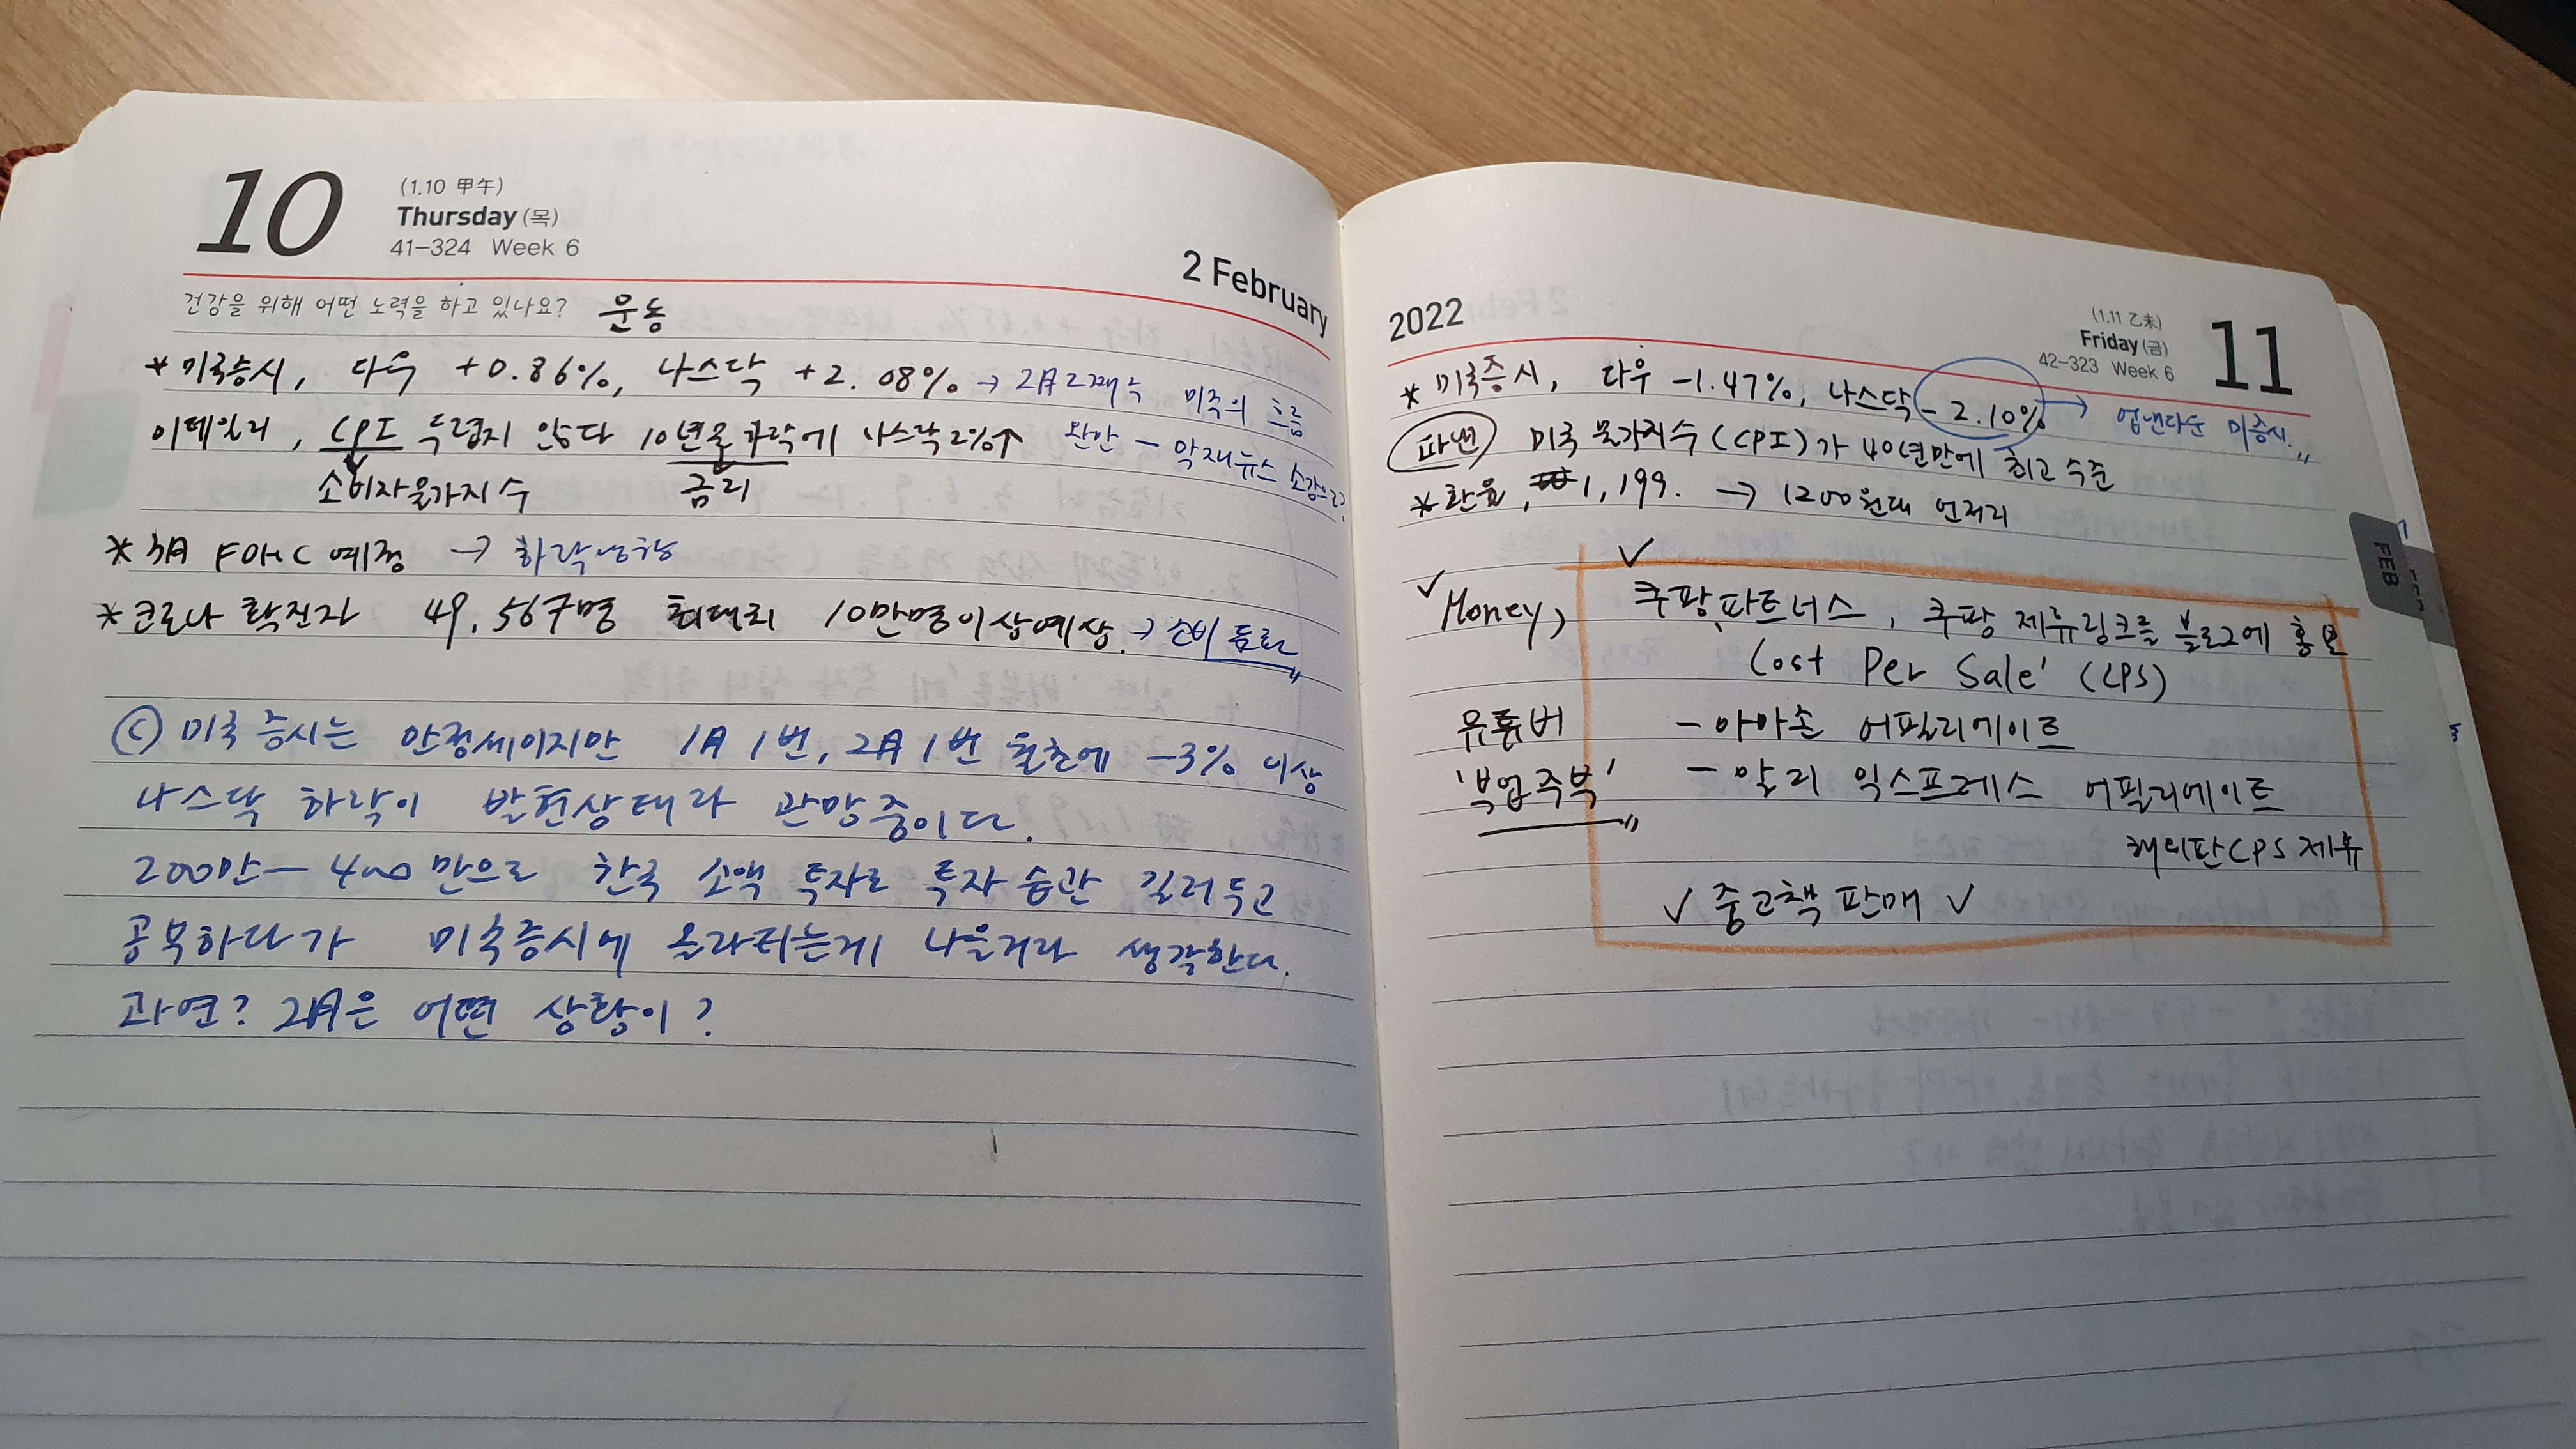 10
(1.10 甲午)
Thursday (목)
41-324 Week 6
2 February
건강을 위해 어떤 노력을 하고 있나요? 운동
* 미국증시, 다우 +0.86%, 나스닥 +2.08% → 2月 2째주 미주의 흐름
이데일리, CPI 두렵지 않다 10년물 하락에 나스닥 2%↑ 완만 - 악재뉴스 소강으로?
소비자물가지수 금리
* 3月 FOMC 예정 → 하락
* 코로나 확진자 49,567명 최대치 10만명이상예상. → 소비 둔화"
ⓒ 미국 증시는 안정세이지만 1月 1번, 2月 1번 월초에 -3% 이상
나스닥 하락이 발현상태라 관망중이다.
200만 - 400만으로 한국 소액 투자로 투자 습관 길러두고
공부하다가 미국증시에 올라타는게 나을거라 생각한다.
과연? 2月은 어떤 상황이?
2022
(1.11 乙未)
Friday (금)
42-323 Week 6
11
* 미국증시, 다우 -1.47%, 나스닥 -2.10% → 업앤다운 미증시."
파넬 미국 물가지수(CPI)가 40년만에 최고 수준
* 환율, 1,199. → 1200원대 언저리
✓ Money, ✓ 쿠팡파트너스, 쿠팡 제휴링크를 블로그에 홍보
'Cost Per Sale' (CPS)
유튜버 - 아마존 어필리에이트
'부업주부'" - 알리 익스프레스 어필리에이트
해외판CPS 제휴
✓ 중고책 판매 ✓
FEB